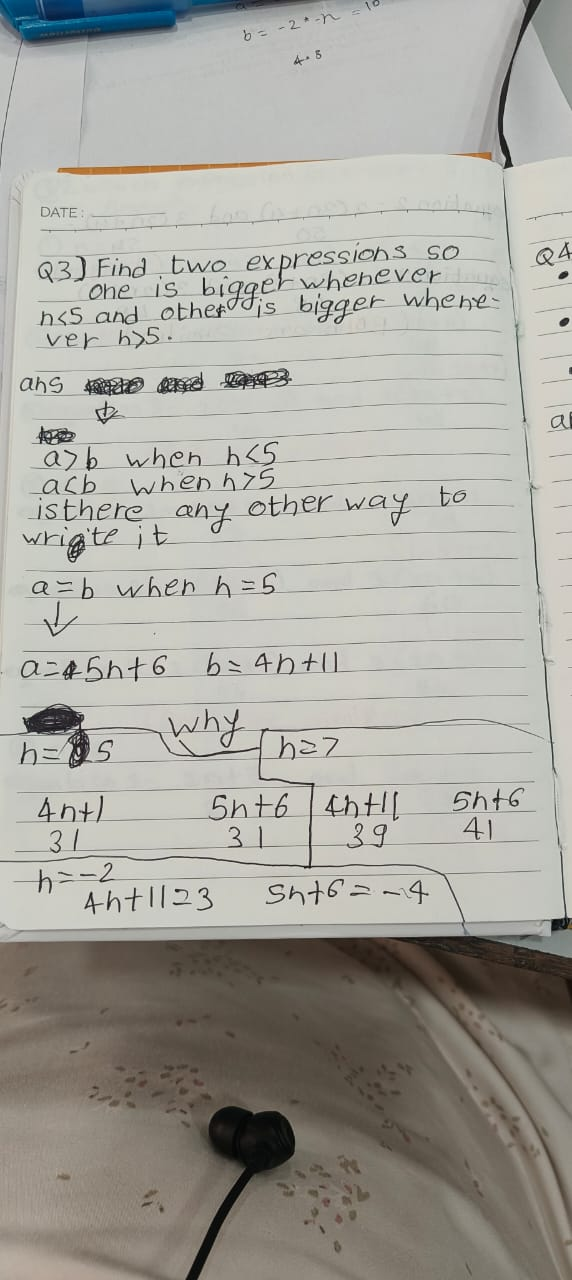 b = -2 * -n = 10
4*8
DATE:
Q3] Find two expressions so
one is bigger whenever
n<5 and other is bigger whene-
ver n>5.
Q4
ans
a>b when n<5
a<b when n>5
isthere any other way to
write it
a=b when n=5
a=5n+6 b=4n+11
why
n=5 n=7
4n+1 5n+6 4n+11 5n+6
31 31 39 41
n=-2
4n+11=3 5n+6=-4